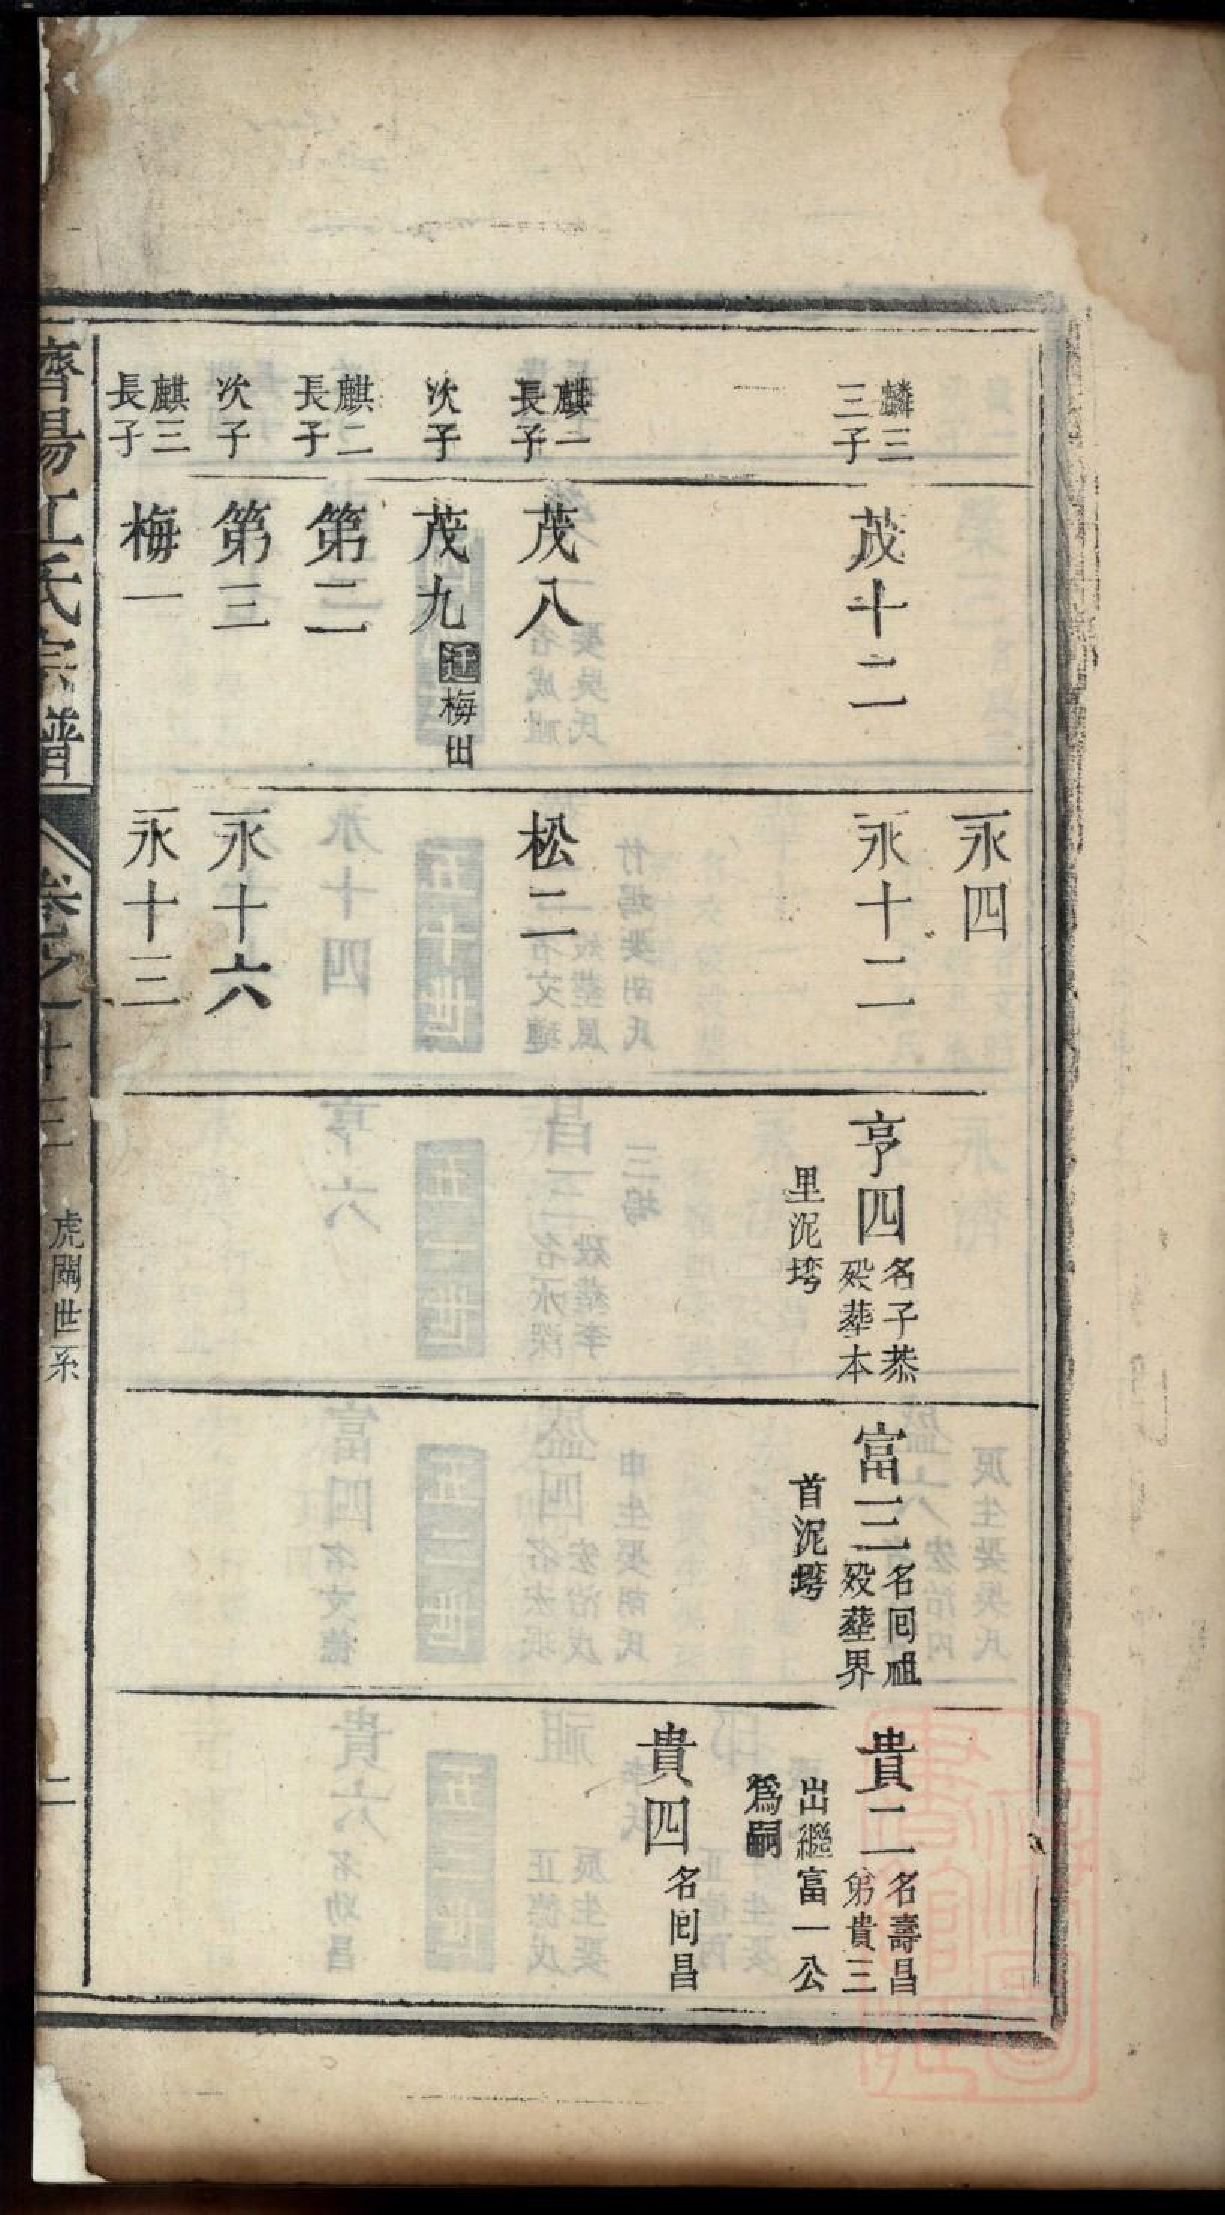 永四
麟三
三子
茂十二
永十二
亨四
名子恭
歿葬本
里泥塆
富三
名囘祖
歿葬界
首泥塆
貴二
名壽昌
弟貴三
出繼富一公
爲嗣
貴四
名囘昌
麒一
長子
茂八
松二
次子
茂九
遷梅田
麒二
長子
第二
次子
第三
永十六
麒三
長子
梅一
永十三
濟陽江氏宗譜
卷之十三
虎關世系
二